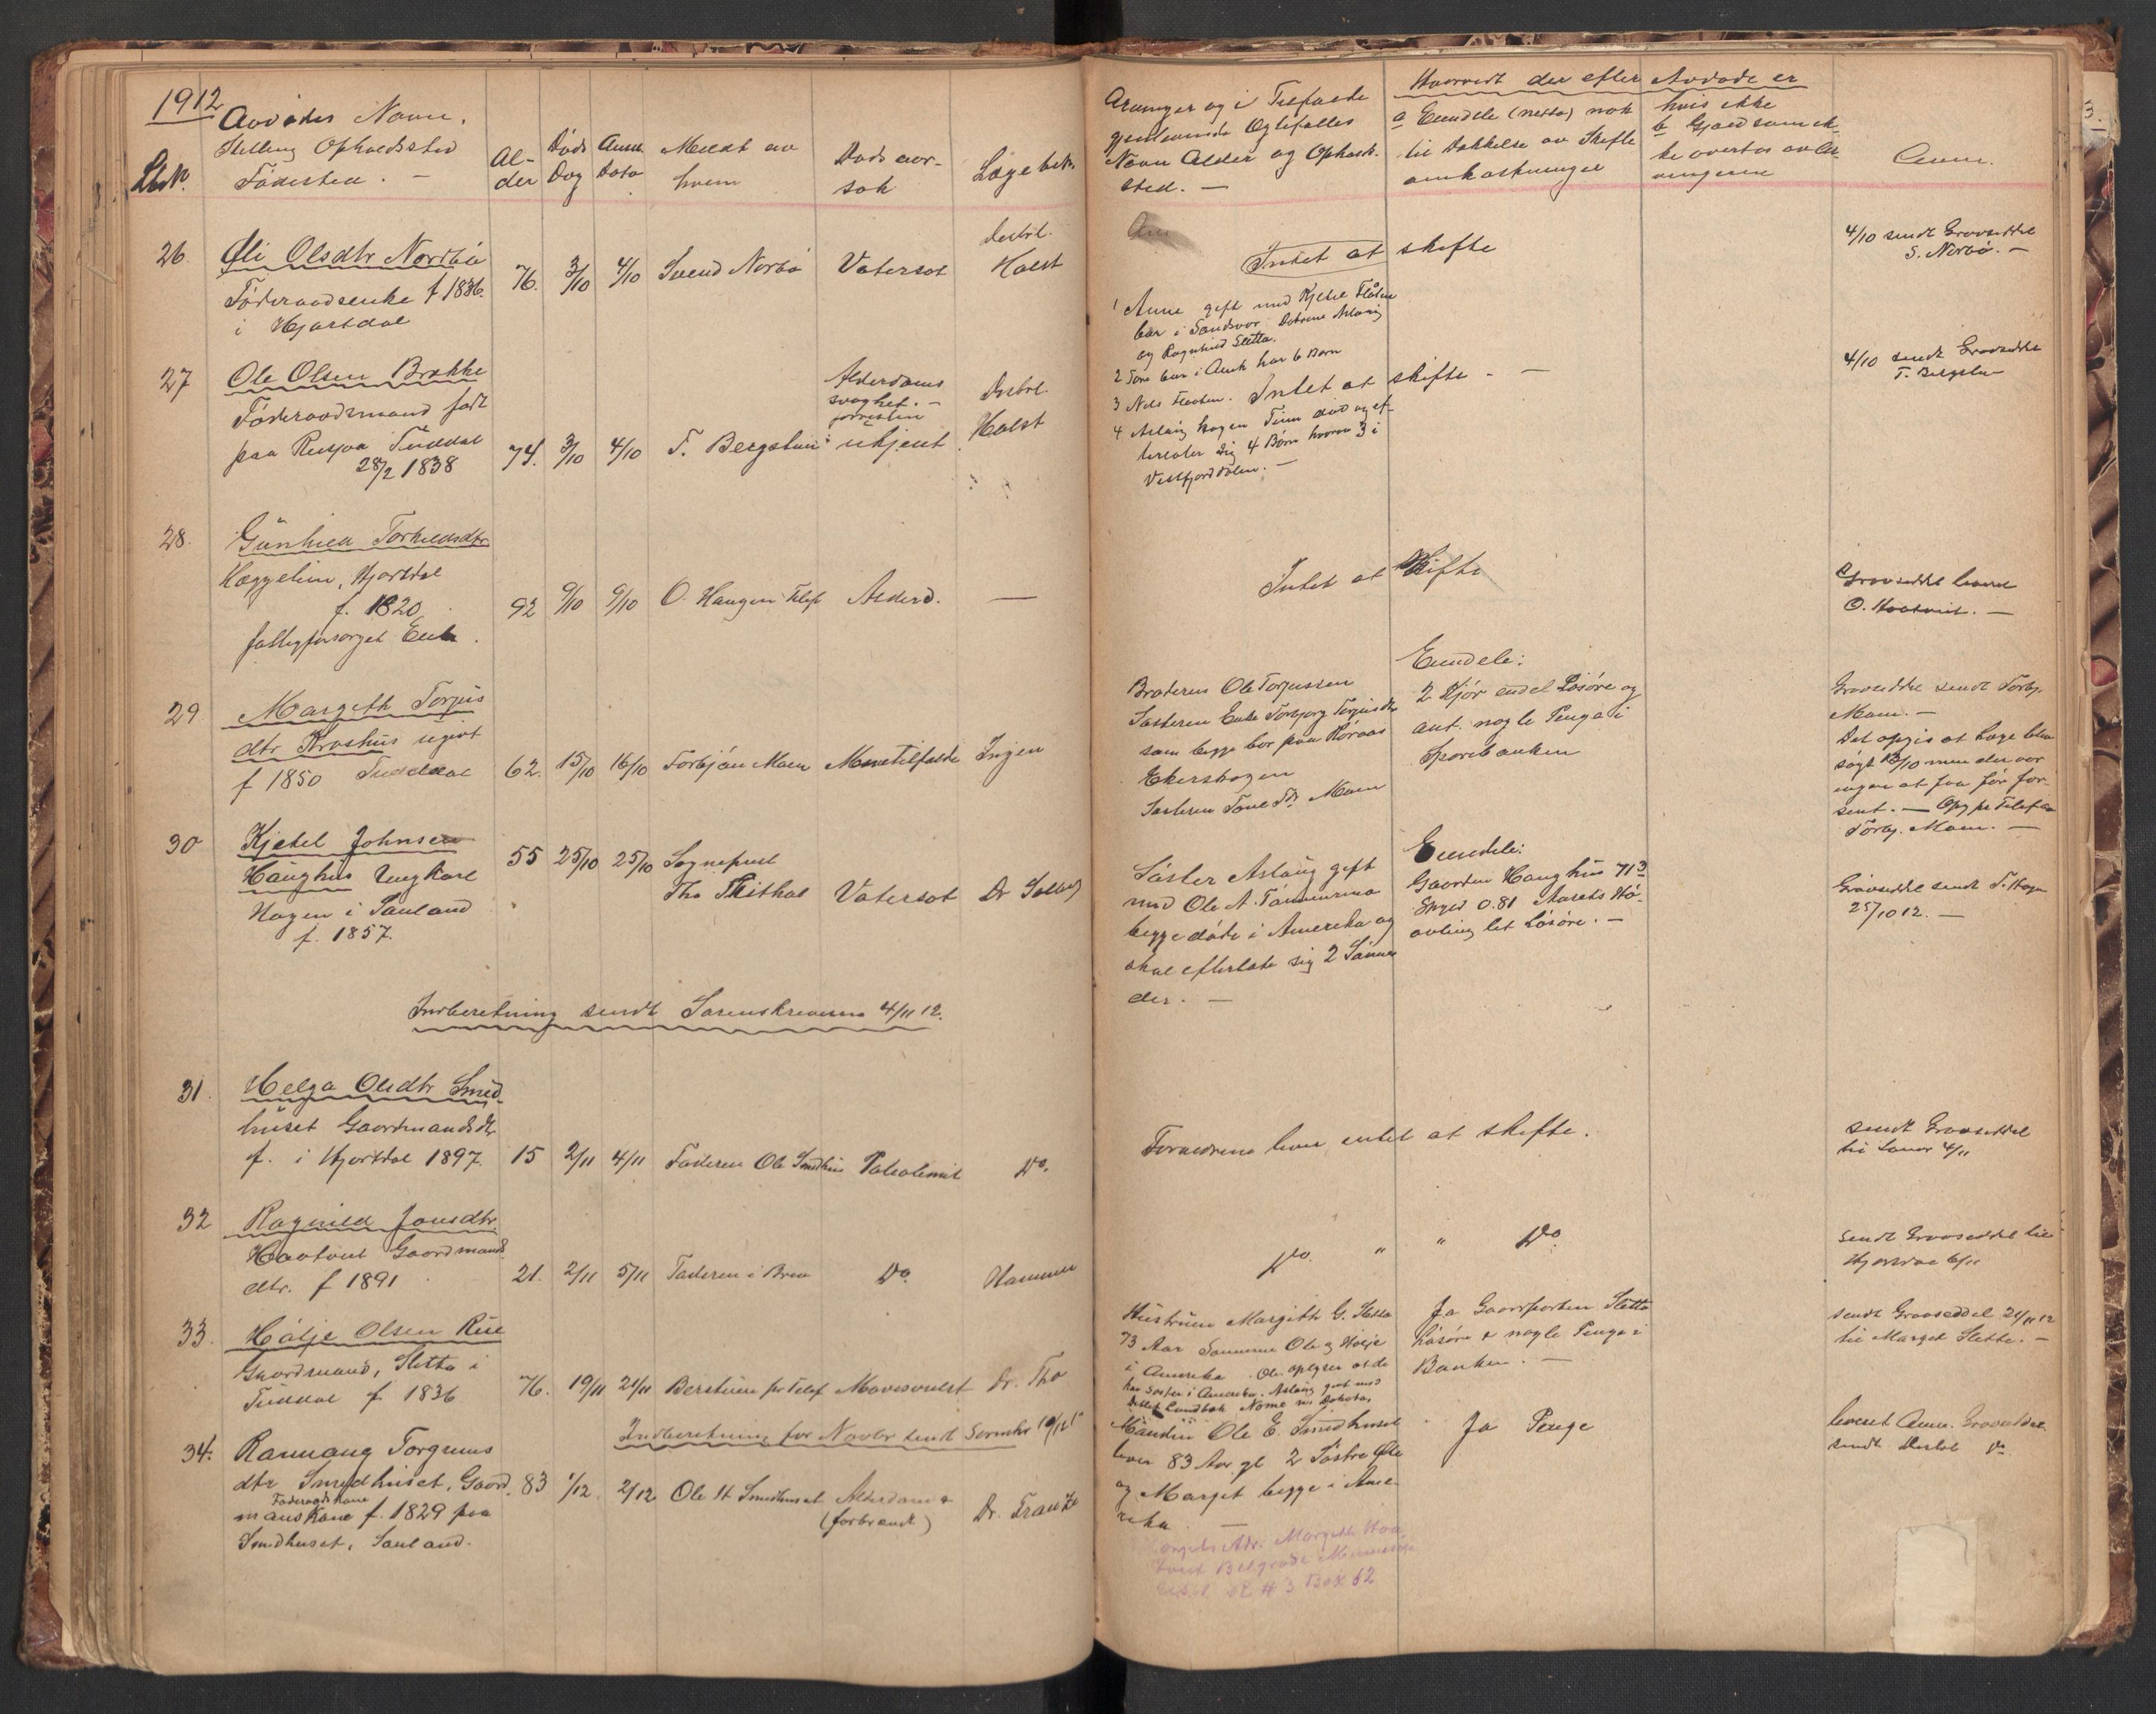 1912
Avdødes Navn,
Stilling Opholdssted
Fødested. —
Lbk.
Al-
der
Døds
Dag
Anm.
Dato
Meldt av
hvem
Døds aar-
sak
Læge beh.
26
Øli Olsdtr Nordbø
Føderaadsenke f 1836.
i Hjartdal
76.
3/10
4/10
Svend Norbø
Vatersot
Distrl.
Holst
27
Ole Olsen Brække
Føderaadsmand født
paa Tuddal
28/2 1838
74.
3/10
4/10
T. Bergsland
Alderdoms
svaghet. —
forresten
ukjent
Distrl.
Holst
28.
Gunhild Torkildsdtr
Hæggelien, Hjartdal
f. 1820
fattigforsørget Enke.
92
9/10
9/10
O. Haugen Telef
Alderd.
—
29
Margeth Torjus
dtr Kroshus ugivt
f 1850 Tuddal
62.
15/10
16/10
Torbjørn Moen
Mavetilfælde
Ingen
30
Kjetel Johnsen
Haughus Ungkarl
Hagen i Sauland
f. 1857.
55
25/10
25/10
Sogneprest
Vatersot
Dr Solberg
Indberetning sendt Sorenskriveren 4/11 12.
31.
Helga Olsdtr Smed-
huset Gaardmandsdtr
f. i Hjartdal 1897.
15
2/11
4/11
Faderen Ole Smedhus
Do.
32
Ragnild Jonsdtr.
Haatveit Gaardmands
dtr. f 1891
21.
2/11
5/11
Faderen i Brev
Do.
Hammer
33.
Hølje Olsen Rue
Gaardmand, Sletta i
Tuddal f. 1836
76.
19/11
21/11
pr Telef
Mavesvulst
Dr. Tho
Indberetning for Novbr sendt Sorenskr
34.
Rannaug Torgrims
dtr Smedhuset, Gaard
Føderaadskone
mans Kone f. 1829 paa
Smedhuset, Sauland.
83
1/12
2/12
Ole H Smedhuset
Alderdom &
(forbrændt)
Dr. Frantze
Arvinger og i Tilfælde
gjenlevende Egtefælles
Navn Alder og Opholds-
sted. —
Hvorvidt der efter Avdøde er
a Eiendele (netto) nok
til Dækkelse av Skifte
omkostninger
hvis ikke
b Gjæld som ik-
ke overtas av Ar-
vingerne
Anm.
Intet at skifte
4/10 sendt Gravseddel
S. Norbø. —
1 Anne gift med Kjetil Flåten
bor i Sandsvær Døtrene Aslaug
og Ragnhild Sletta.
2 Tore bor i Amk har 6 Børn
3 Nels Flaaten.
Intet at skifte — —
4 Aslaug Hagen Tinn død og ef-
terlater sig 4 Børn hvorav 3 i
Vestfjorddalen. —
4/10 sendt Gravseddel
T. Bergsland
Intet at skifte
Gravseddel leveret
O. Haatveit. —
Broderen Ole Torjussen
Søsteren Enke Torbjørg Torjusdtr
som begge bor paa Røraas
Søsteren Tone Tdr Moen
Eiendele:
2 Kjør endel Løsøre og
ant. nogle Penge i
Sparebanken
Gravseddel sendt Torbj.
Moen. —
Det opgis at Læge blev
søgt 13/10 men der var
ingen at faa før for-
sent. — Opg pr Telefon
Torbj. Moen. —
Søster Aslaug gift
med Ole A. Tømmermo
begge døde i Amerika og
skal efterlate sig 2 Sønner
der. —
Eiendele:
Gaarden Haughus 71 3
Skyld 0.81 Aarets Hø-
avling let Løsøre. —
Gravseddel sendt T. Hagen
25/10 12. —
Forældrene lever intet at skifte.
sendt Gravseddel
til Lensm 4/11
Do. " " Do.
sendt Gravseddel til
Hjartdal 6/11
Hustruen Margith G. Sletta
73 Aar Sønnerne Ole og Hølje
i Amerika. Ole oplyser at de
har Søster i Amerika. Aslaug givt med
Nome N. Dakota,
Ja Gaardparten Sletta
Løsøre & nogle Penge i
Banken. —
sendt Gravseddel 21/11 12
til Marget Sletta. —
Manden Ole E. Smedhuset
lever 83 Aar gl 2 Søstre Øli
og Marget begge i Ame-
rika —
Ja Penge
leveret Anm. Gravseddel
sendt Distrl Do.
Margets Adr: Margith Haa
tveit Belgrade Minnesota
R # 3 Box 62